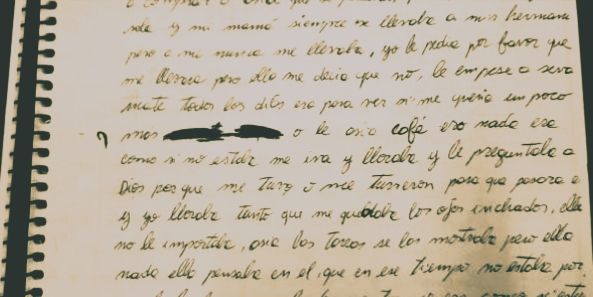 o compras o cosa que se
sola y mi mamá siempre se llevaba a mis hermana
pero a mi nunca me llevaba, yo le pedia por favor que
me llevara pero ella me decia que no, le empese a
todos los días eso para ver si me queria un poco
mas o le asia café eso nada era
como si no estaba me iva y lloraba y le preguntaba a
Dios por que me tuvo o me tuvieron para que pasara e
y yo lloraba tanto que me quedaba los ojos inchados, ella
no le importaba, asia las tareas se las mostraba pero ella
nada ella pensaba en el, que en ese tiempo no estaba por